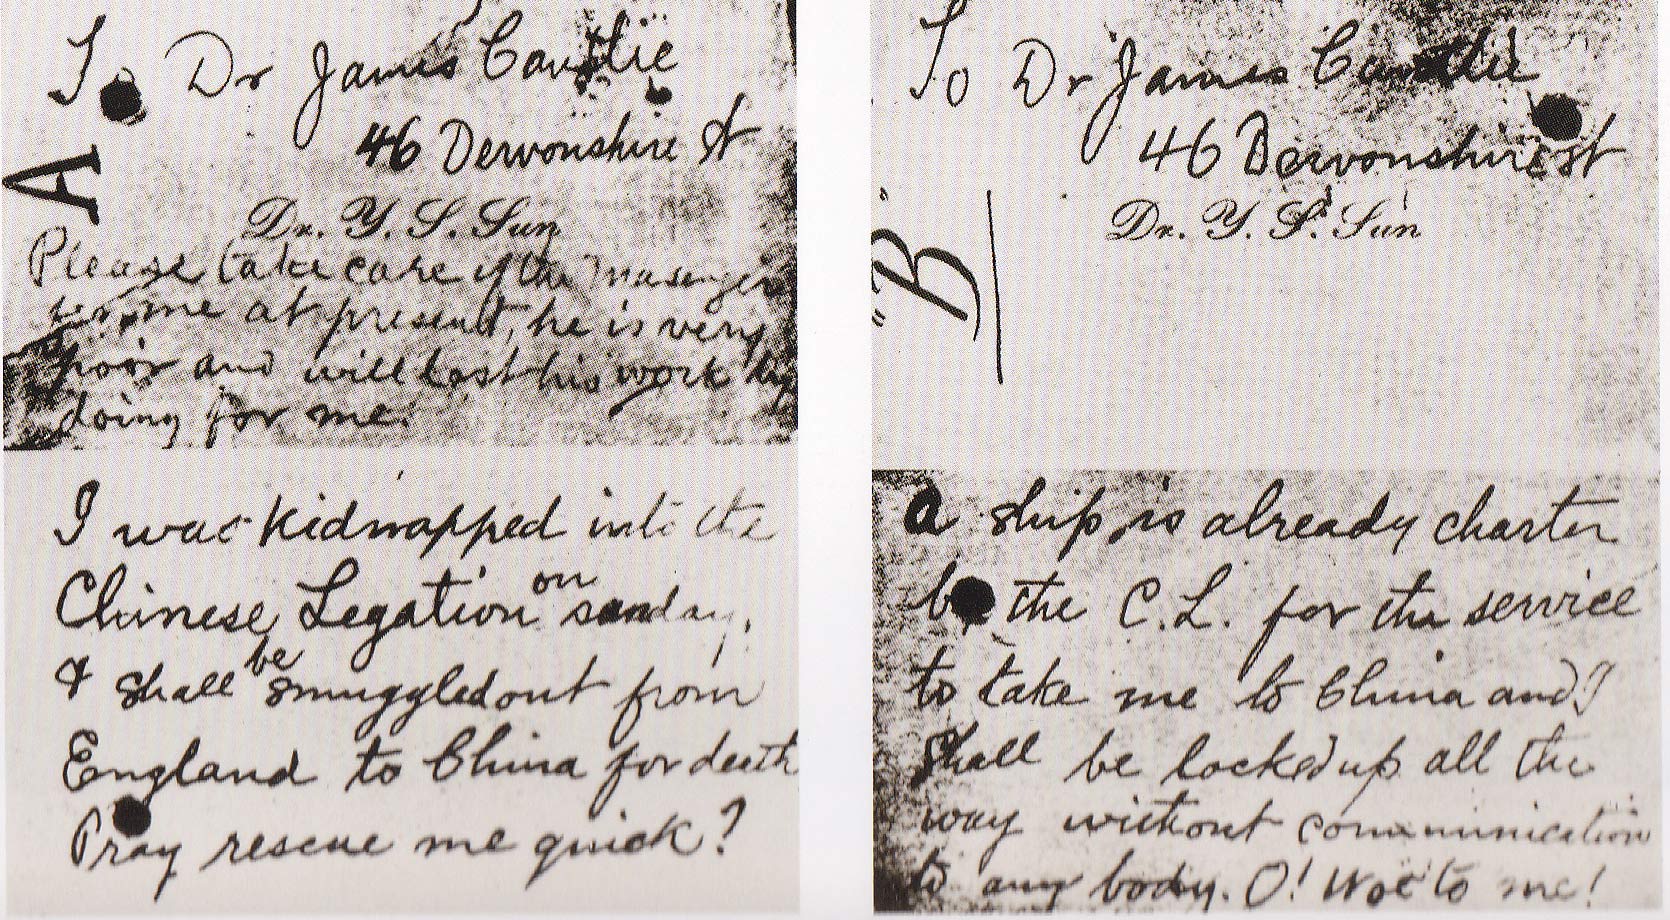 To Dr James Cantlie
46 Dervonshire St
A
Dr. Y. S. Sun
Please take care of the masenger
for me at present, he is very
poor and will lost his work by
doing for me.
I was kidnapped into the
Chinese Legation on sunday,
& shall be smuggled out from
England to China for death
Pray rescue me quick?
To Dr James Cantlie
46 Dervonshire St
"B"
Dr. Y. S. Sun
A ship is already charter
by the C.L. for the service
to take me to China and I
shall be locked up all the
way without communication
to any body. O! Woe to me!